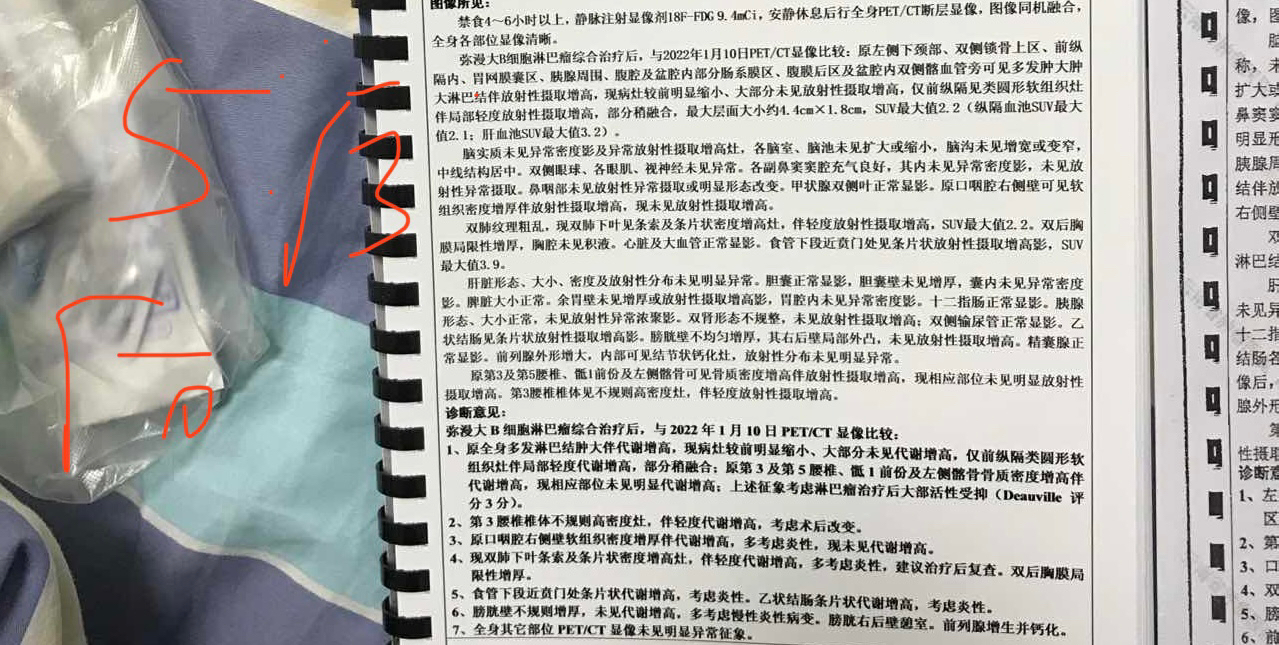 图像所见：
禁食4～6小时以上，静脉注射显像剂18F-FDG 9.4mCi，安静休息后行全身PET/CT断层显像，图像同机融合，
全身各部位显像清晰。
弥漫大B细胞淋巴瘤综合治疗后，与2022年1月10日PET/CT显像比较：原左侧下颈部、双侧锁骨上区、前纵
隔内、胃网膜囊区、胰腺周围、腹腔及盆腔内部分肠系膜区、腹膜后区及盆腔内双侧髂血管旁可见多发肿大肿
大淋巴结伴放射性摄取增高，现病灶较前明显缩小、大部分未见放射性摄取增高，仅前纵隔见类圆形软组织灶
伴局部轻度放射性摄取增高，部分稍融合，最大层面大小约4.4cm×1.8cm，SUV最大值2.2（纵隔血池SUV最大
值2.1；肝血池SUV最大值3.2）。
脑实质未见异常密度影及异常放射性摄取增高灶，各脑室、脑池未见扩大或缩小，脑沟未见增宽或变窄，
中线结构居中。双侧眼球、各眼肌、视神经未见异常。各副鼻窦窦腔充气良好，其内未见异常密度影，未见放
射性异常摄取。鼻咽部未见放射性异常摄取或明显形态改变。甲状腺双侧叶正常显影。原口咽腔右侧壁可见软
组织密度增厚伴放射性摄取增高，现未见放射性摄取增高。
双肺纹理粗乱，现双肺下叶见条索及条片状密度增高灶，伴轻度放射性摄取增高，SUV最大值2.2。双后胸
膜局限性增厚，胸腔未见积液。心脏及大血管正常显影。食管下段近贲门处见条片状放射性摄取增高影，SUV
最大值3.9。
肝脏形态、大小、密度及放射性分布未见明显异常。胆囊正常显影，胆囊壁未见增厚，囊内未见异常密度
影。脾脏大小正常。余胃壁未见增厚或放射性摄取增高影，胃腔内未见异常密度影。十二指肠正常显影。胰腺
形态、大小正常，未见放射性异常浓聚影。双肾形态不规整，未见放射性摄取增高；双侧输尿管正常显影。乙
状结肠见条片状放射性摄取增高影。膀胱壁不均匀增厚，其右后壁局部外凸，未见放射性摄取增高。精囊腺正
常显影。前列腺外形增大，内部可见结节状钙化灶，放射性分布未见明显异常。
原第3及第5腰椎、骶1前份及左侧髂骨可见骨质密度增高伴放射性摄取增高，现相应部位未见明显放射性
摄取增高。第3腰椎椎体见不规则高密度灶，伴轻度放射性摄取增高。
诊断意见：
弥漫大 B 细胞淋巴瘤综合治疗后，与 2022 年 1 月 10 日 PET/CT 显像比较：
1、原全身多发淋巴结肿大伴代谢增高，现病灶较前明显缩小、大部分未见代谢增高，仅前纵隔类圆形软
组织灶伴局部轻度代谢增高，部分稍融合；原第 3 及第 5 腰椎、骶 1 前份及左侧髂骨骨质密度增高伴
代谢增高，现相应部位未见明显代谢增高；上述征象考虑淋巴瘤治疗后大部活性受抑（Deauville 评
分 3 分）。
2、第 3 腰椎椎体不规则高密度灶，伴轻度代谢增高，考虑术后改变。
3、原口咽腔右侧壁软组织密度增厚伴代谢增高，多考虑炎性，现未见代谢增高。
4、现双肺下叶条索及条片状密度增高灶，伴轻度代谢增高，多考虑炎性，建议治疗后复查。双后胸膜局
限性增厚。
5、食管下段近贲门处条片状代谢增高，考虑炎性。乙状结肠条片状代谢增高，考虑炎性。
6、膀胱壁不规则增厚，未见代谢增高，多考虑慢性炎性病变。膀胱右后壁憩室。前列腺增生并钙化。
7、全身其它部位 PET/CT 显像未见明显异常征象。
像，图
称，未
扩大或
鼻窦窦
明显形
胰腺周
结伴放
右侧壁
双
淋巴结
肝
未见异
十二指
结肠各
像后，
腺外形
第
性摄取
诊断意
1、左
区
2、第
3、口
4、双
5、膀
6、前